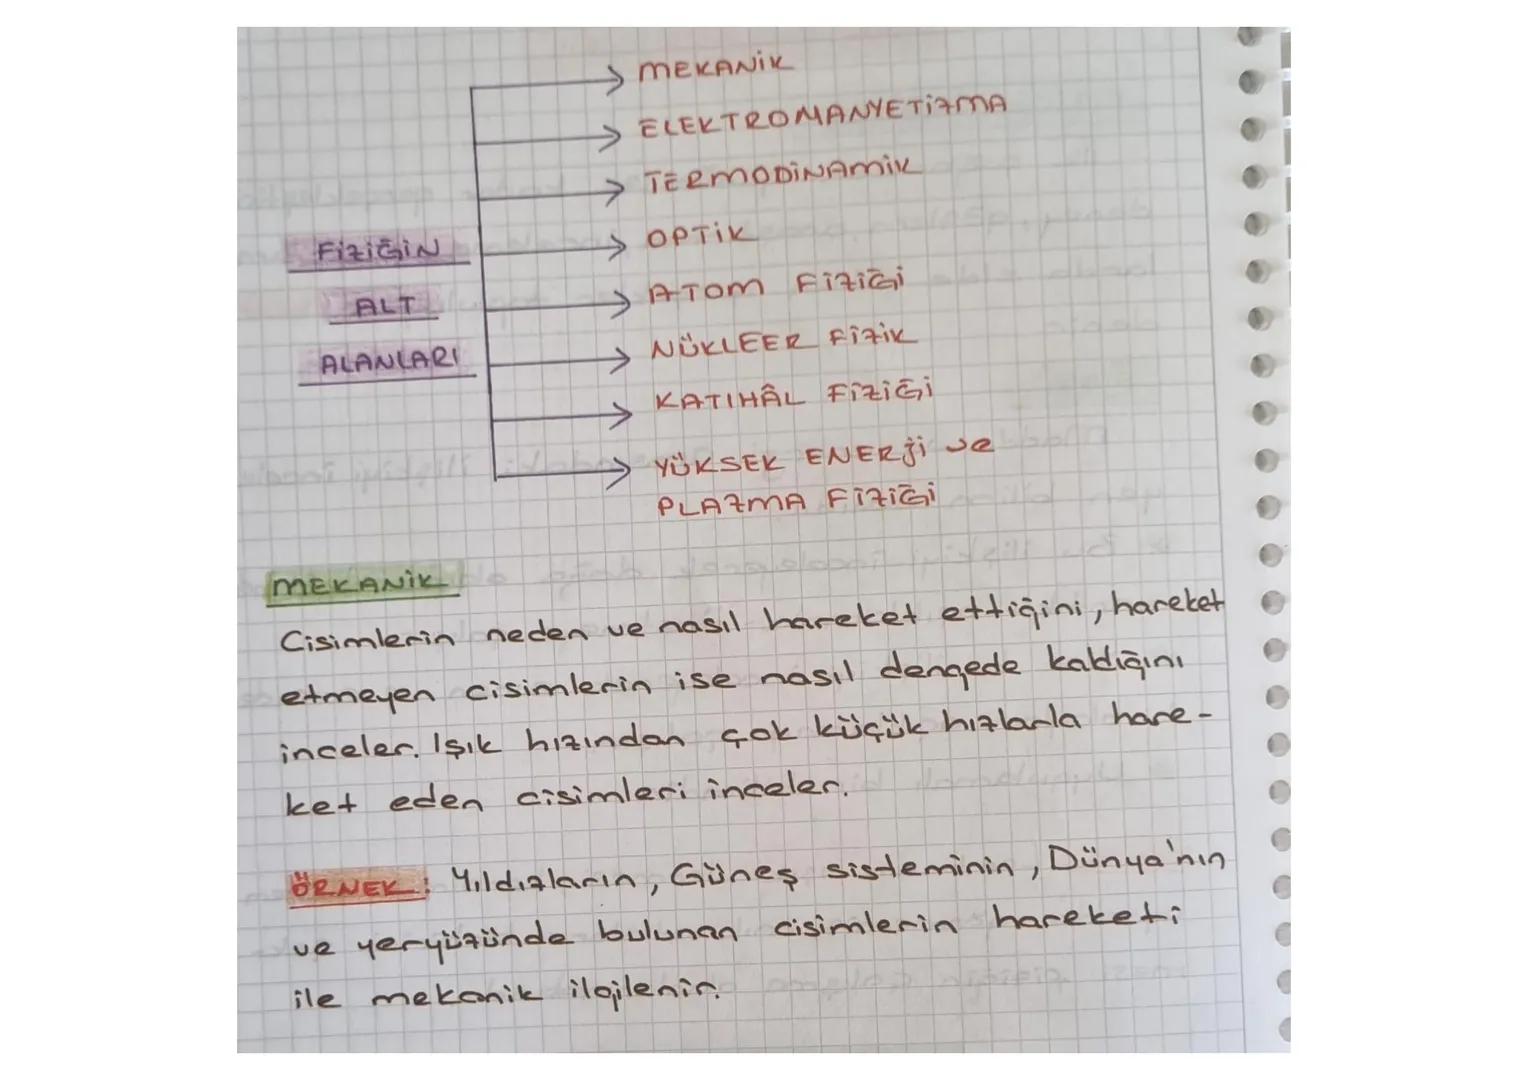 MEKANİK
ELEKTROMANYETİZMA
TERMODİNAMİK
OPTİK
ATOM FİZİĞİ
NÜKLEER FİZİK
KATIHÂL FİZİĞİ
YÜKSEK ENERJİ ve
PLAZMA FİZİĞİ
FİZİĞİN
ALT
ALANLARI
MEKANİK
Cisimlerin neden ve nasıl hareket ettiğini, hareket
etmeyen cisimlerin ise nasıl dengede kaldığını
inceler. Işık hızından çok küçük hızlarla hare-
ket eden cisimleri inceler.
ÖRNEK: Yıldızların, Güneş sisteminin, Dünya'nın
ve yeryüzünde bulunan cisimlerin hareketi
ile mekanik ilgilenir.